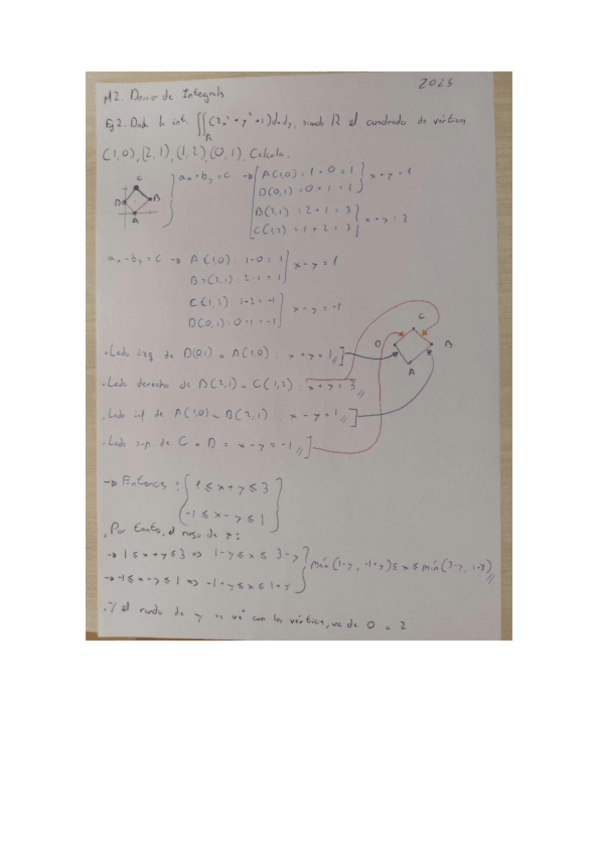 M2. Dominio de Integrals 2025
Ej 2. Dada la int. ∬_R (2x² + y² + 1)dxdy, siendo R el cuadrado de vértices
(1,0), (2,1), (1,2), (0,1). Calcula.
C
D B
A
ax + by = c → A(1,0) = 1 + 0 = 1
D(0,1) = 0 + 1 = 1
x + y = 1
B(2,1) = 2 + 1 = 3
C(1,2) = 1 + 2 = 3
x + y = 3
ax - by = c → A(1,0) : 1 - 0 = 1
B = (2,1) : 2 - 1 = 1
x - y = 1
C(1,2) 1 - 2 = -1
D(0,1) : 0 - 1 = -1
x - y = -1
C
D B
A
· Lado izq. de D(0,1) a A(1,0) : x + y = 1 //
· Lado derecho de B(2,1) a C(1,2) : x + y = 3 //
· Lado inf de A(1,0) a B(2,1) : x - y = 1 //
· Lado sup. de C a D = x - y = -1 //
→ Entonces : 1 ≤ x + y ≤ 3
-1 ≤ x - y ≤ 1
· Por tanto, el rango de x:
→ 1 ≤ x + y ≤ 3 ⇒ 1 - y ≤ x ≤ 3 - y
→ -1 ≤ x - y ≤ 1 ⇒ -1 + y ≤ x ≤ 1 + y
(1-y, -1+y) ≤ x ≤ mín (3-y, 1+y) //
· Y el rango de y se vé con los vértices, va de 0 a 2